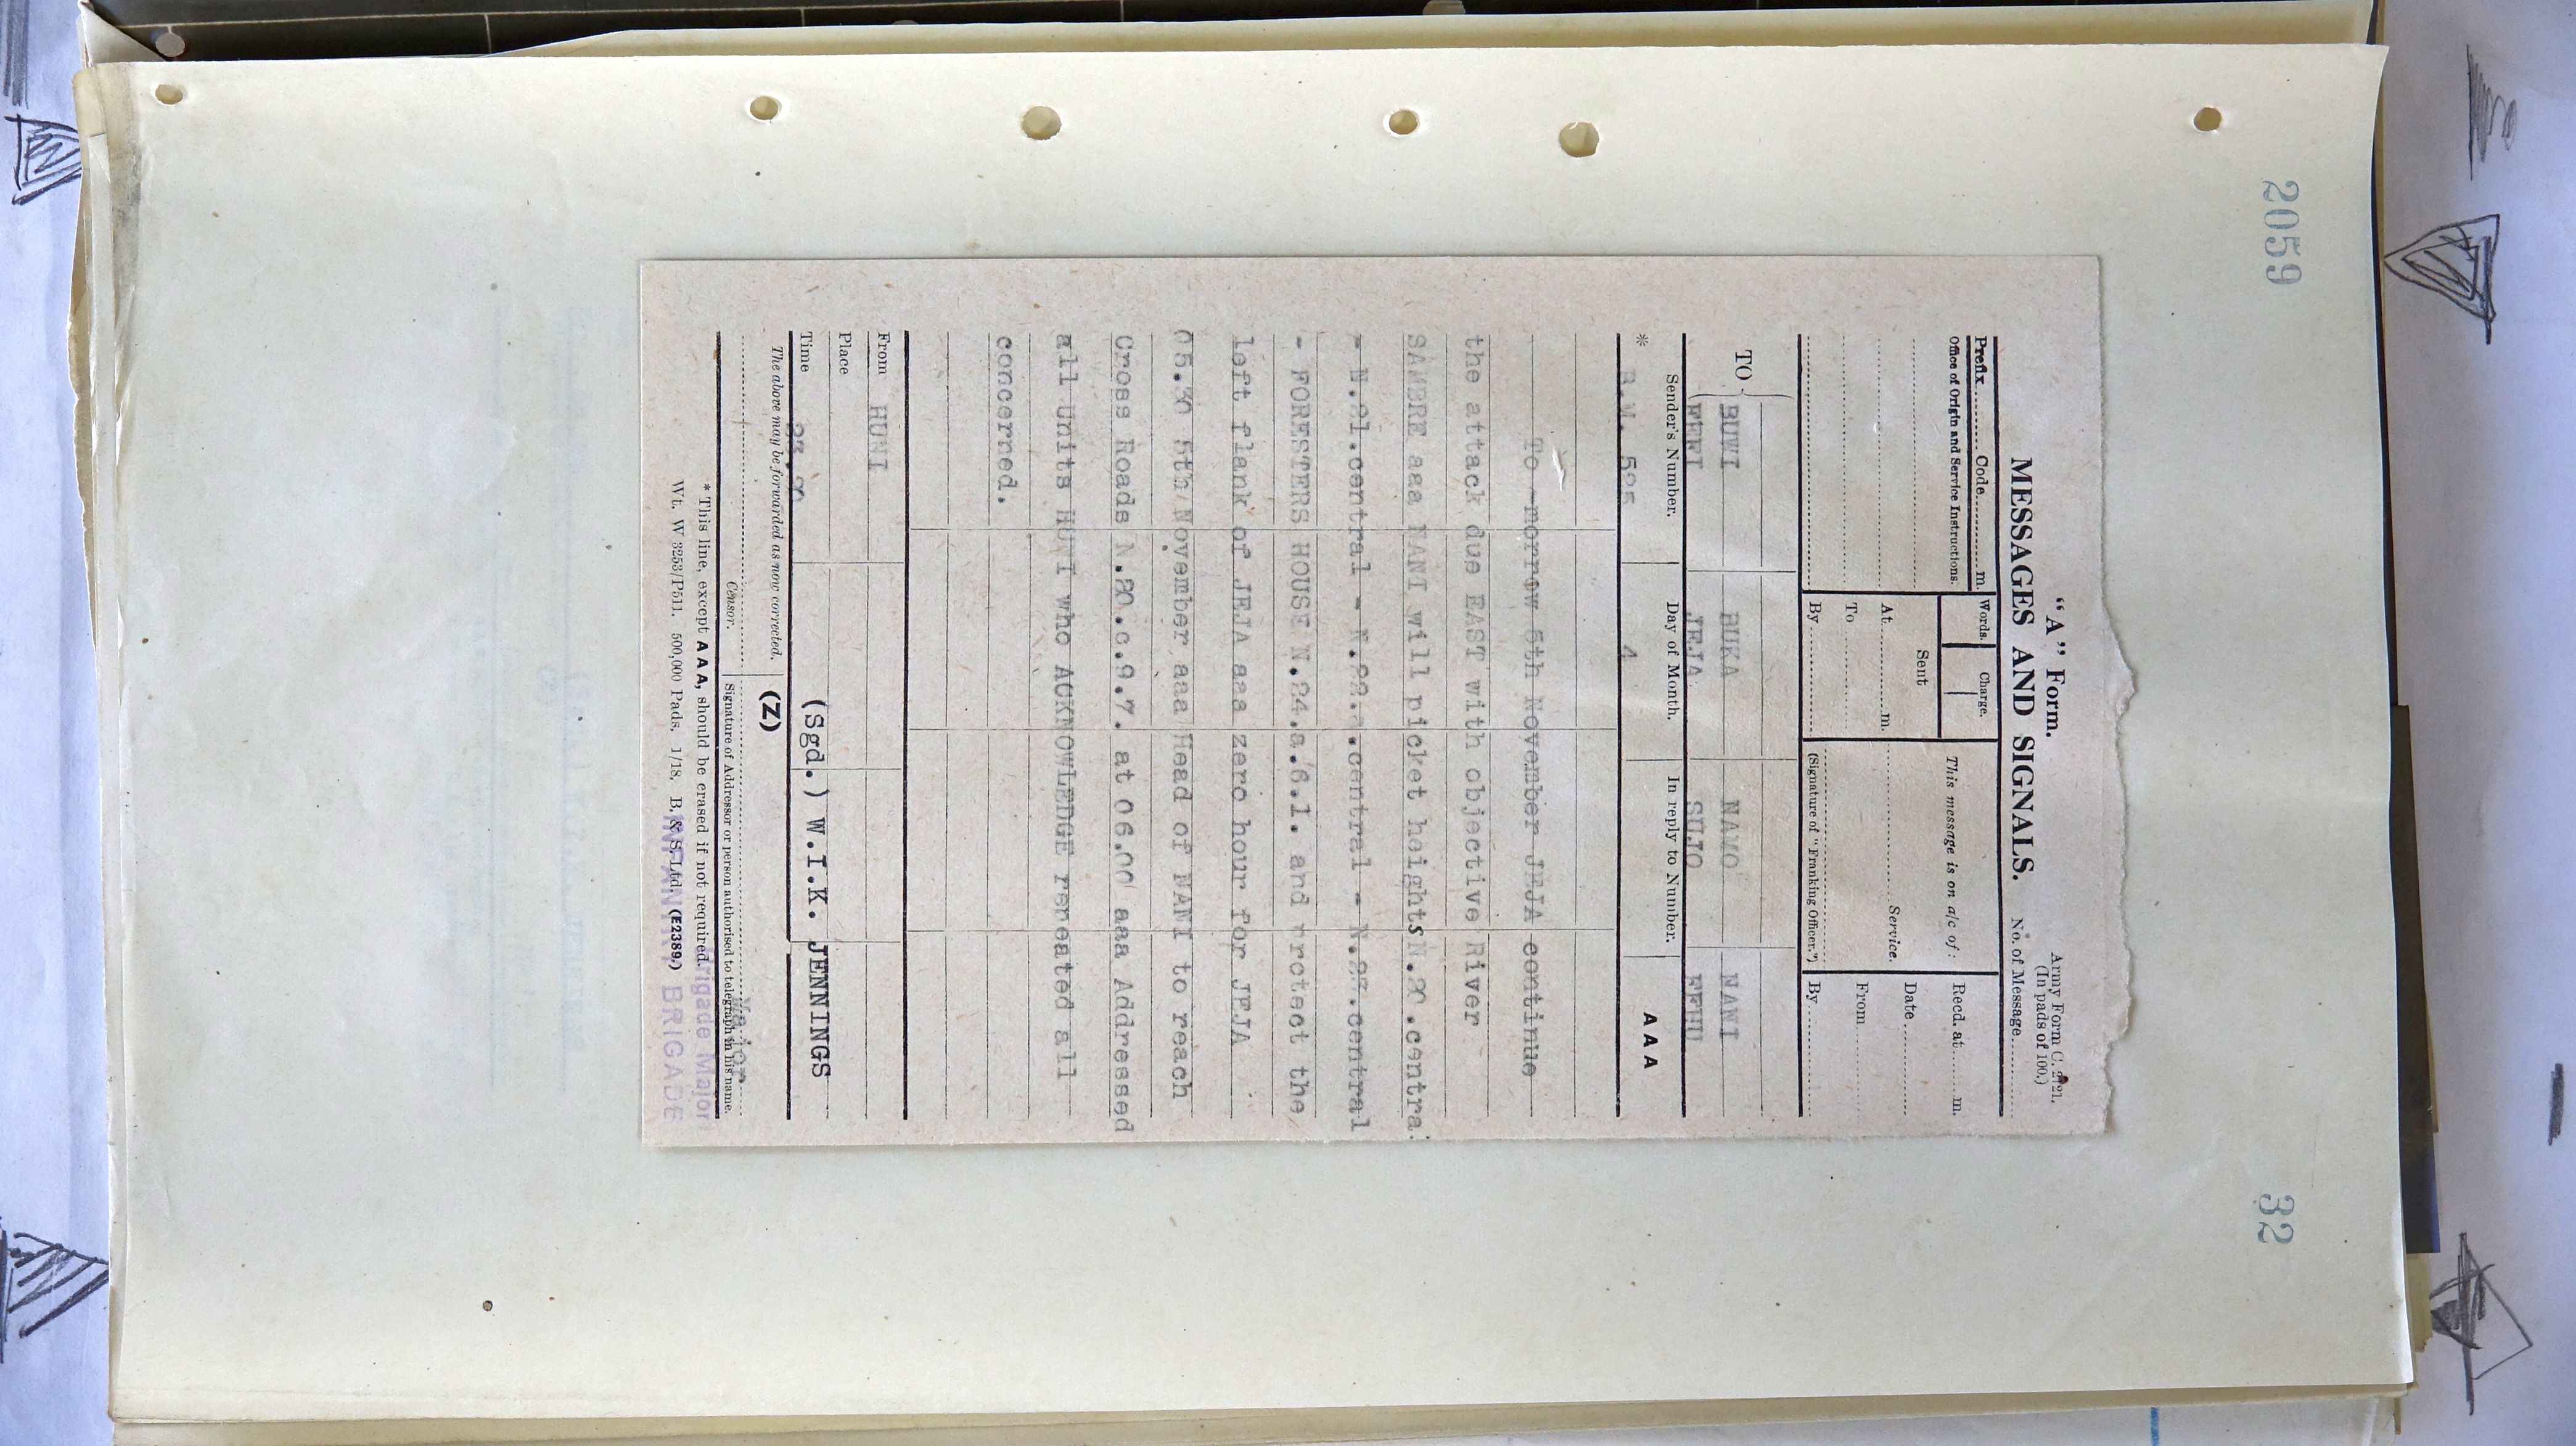 2059
32
"A" Form.
Army Form C. 2121.
(In pads of 100.)
MESSAGES AND SIGNALS.
No. of Message..........
Prefix.......... Code.......... m.
Words.
Charge.
This message is on a/c of:
Recd. at...... m.
Office of Origin and Service Instructions.
Sent
Date..........
At.......... m.
.......... Service.
From..........
To..........
By..........
(Signature of "Franking Officer.")
By..........
TO
BUWI
BUKA
NAMO
NANI
JEJA
SUJO
Sender's Number.
Day of Month.
In reply to Number.
AAA
* B.M. 595
4
To-morrow 5th November JEJA continue
the attack due EAST with objective River
SAMBRE aaa NANI will picket heights N.20.centra
- N.21.central - central - central
- FORESTERS HOUSE N.24.a.6.1. and protect the
left flank of JEJA aaa zero hour for JEJA
05.30 5th November aaa Head of NANI to reach
Cross Roads N.20.c.9.7. at 06.00 aaa Addressed
all Units HUNI who ACKNOWLEDGE repeated all
concerned.
From HUNI
Place
Time
(Sgd.) W.I.K. JENNINGS
The above may be forwarded as now corrected.
(Z)
Major
Censor.
Signature of Addressor or person authorised to telegraph in his name.
* This line, except AAA, should be erased if not required.
Brigade Major
Wt. W 3253/P511. 500,000 Pads. 1/18. B. & S. Ltd. (E2389.)
INFANTRY BRIGADE